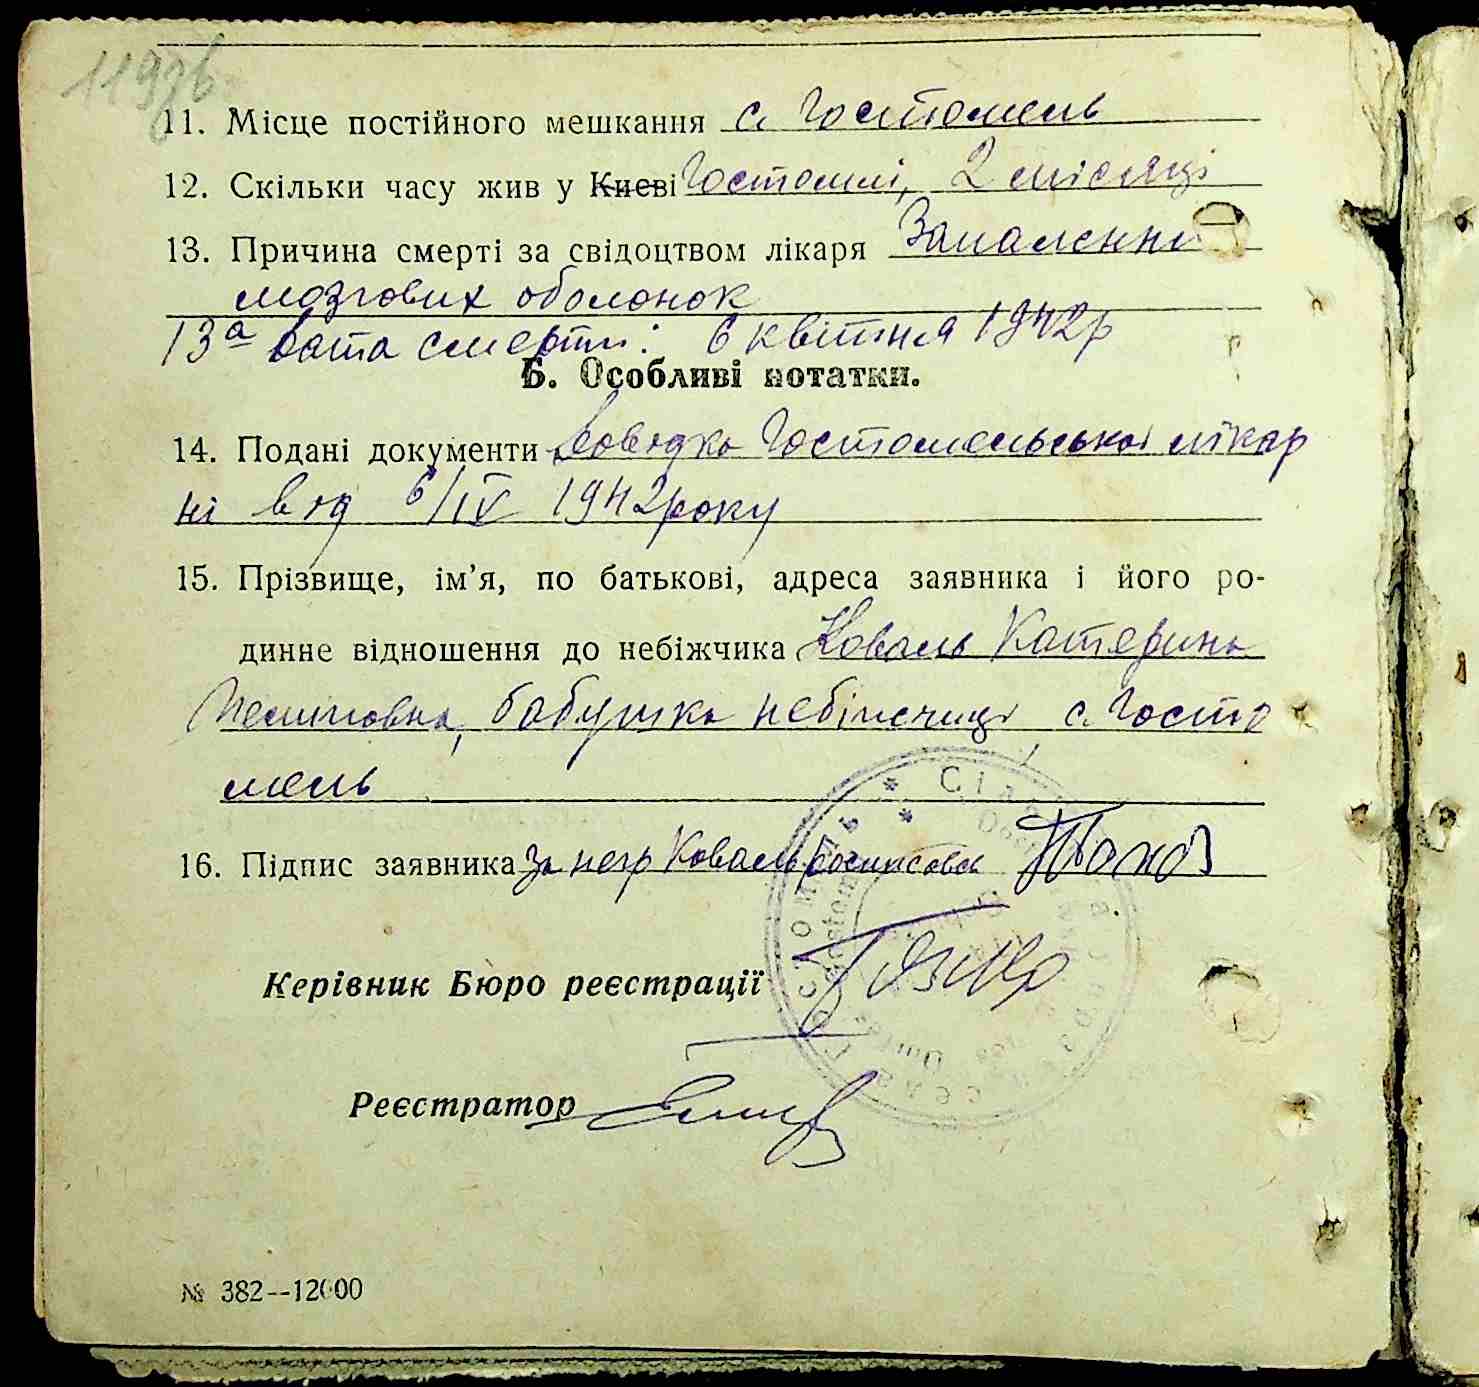 119зв
11. Місце постійного мешкання с. Гостомель
12. Скільки часу жив у Києві Гостомлі, 2 місяці
13. Причина смерті за свідоцтвом лікаря Запалення
мозгових оболонок
13а Дата смерти: 6 квітня 1942р
Б. Особливі нотатки.
14. Подані документи Довідка Гостомельської лікар
ні від 6/IV 1942 року
15. Прізвище, ім’я, по батькові, адреса заявника і його ро-
динне відношення до небіжчика Коваль Катерина
бабушка небіжчиці, с. Госто
мель
16. Підпис заявника За негр Коваль росписався
Керівник Бюро реєстрації
Реєстратор
№ 382--12000